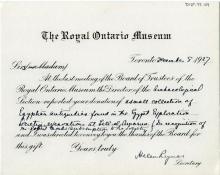 The Royal Ontario Museum
Toronto December 8 1927
Sir (or Madam)
At the last meeting of the Board of Trustees of the
Royal Ontario Museum the Director of the Archaeological
Section reported your donation of a small collection of
Egyptian antiquities found in the Egypt Exploration
Society excavations at Tell el Amarna, (in recognition of
subscription to the Society)
and I was directed to convey to you the thanks of the Board for
this gift. Yours truly
Secretary